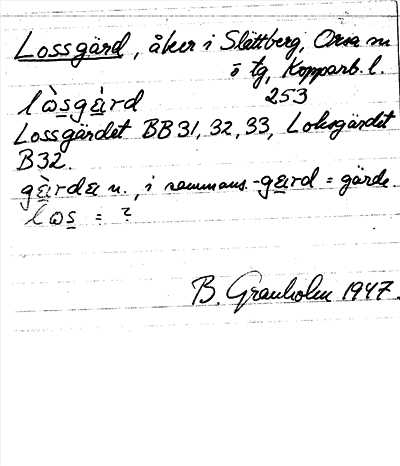 Lossgärd, åker i Slättberg, Orsa sn
ö tg, Kopparb. l.
253
lɷ̀sgɛ̀rd
Lossgärdet BB 31, 32, 33, Loksgärdet
B 32.
i sammans. = gärde.
= ?
B. Granholm 1947.